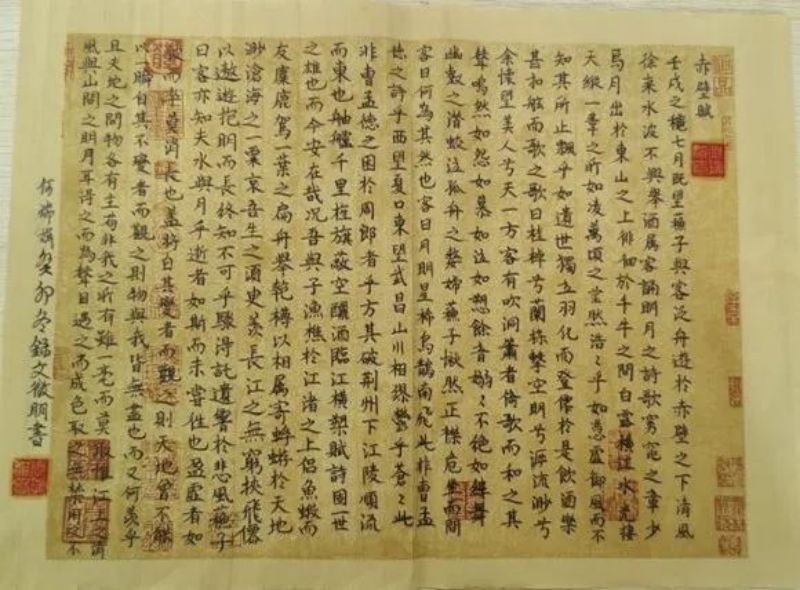 赤壁賦
壬戌之秋七月既望蘇子與客泛舟遊於赤壁之下清風
徐來水波不興舉酒属客誦明月之詩歌窈窕之章少
焉月出於東山之上徘徊於斗牛之間白露橫江水光接
天縱一葦之所如凌萬頃之茫然浩〻乎如憑虚御風而不
知其所止飄乎如遺世獨立羽化而登僊於是飲酒樂
甚扣舷而歌之歌曰桂棹兮蘭槳擊空明兮泝流渺兮
余懷望美人兮天一方客有吹洞簫者倚歌而和之其
聲嗚然如怨如慕如泣如愬餘音嫋〻不絶如縷舞
幽壑之潜蛟泣孤舟之嫠婦蘇子愀然正襟危坐而問
客曰何為其然也客曰月明星稀烏鵲南飛此非曹孟
德之詩乎西望夏口東望武昌山川相繆鬱乎蒼〻此
非曹孟德之困於周郎者乎方其破荆州下江陵順流
而東也舳艫千里旌旗蔽空釃酒臨江横槊賦詩固一世
之雄也而今安在哉况吾與子漁樵於江渚之上侣魚蝦而
友麋鹿駕一葉之扁舟舉匏樽以相属寄蜉蝣於天地
渺滄海之一粟哀吾生之須臾羡長江之無窮挾飛僊
以遨遊抱明而長終知不可乎驟得託遺響於悲風蘇子
曰客亦知夫水與月乎逝者如斯而未嘗往也盈虚者如
而卒莫消長也盖將自其變者而觀之則天地曾不能
以一瞬自其不變者而觀之則物與我皆無盡也而又何羡乎
且天地之間物各有主苟非我之所有雖一毫而莫取惟江上之清
風與山間之明月耳得之而為聲目遇之而成色取之無禁用之不
癸卯冬錄文徵明書